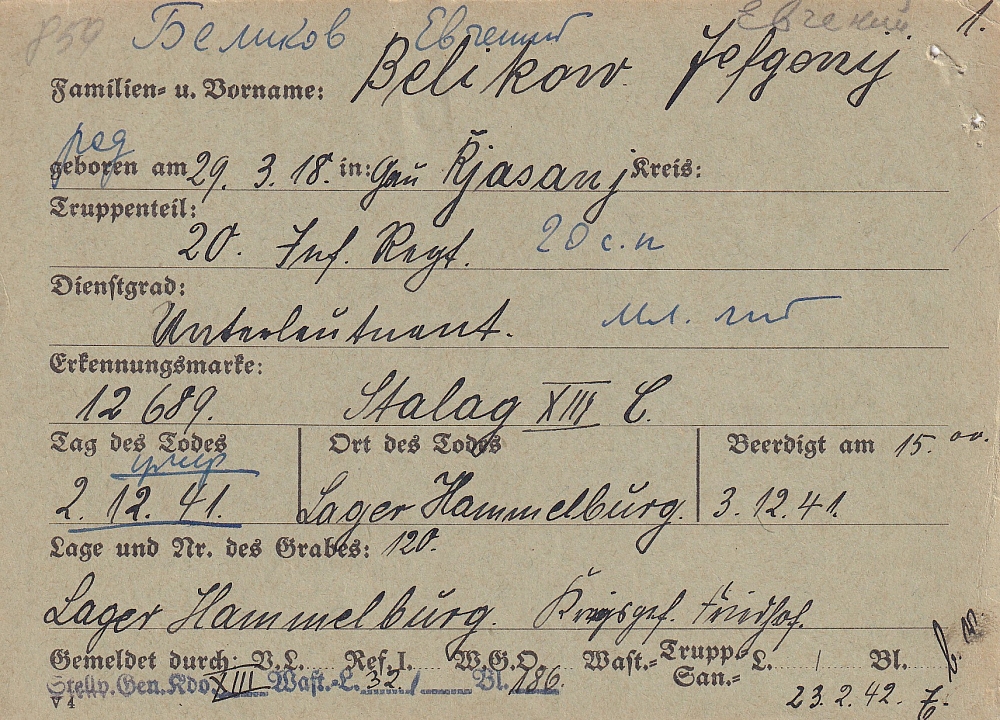 850 Беликов Евгений Евгений 1.
Familien= u. Vorname: Belikow Jefgenij
род
geboren am 29. 3. 18. in: Gau Rjasanj Kreis:
Truppenteil:
20. Inf. Regt. 20 с.п
Dienstgrad:
Unterleutnant. мл. лит
Erkennungsmarke:
12 689. Stalag XIII C.
Tag des Todes Ort des Todes Beerdigt am 15.00.
умер
2. 12. 41. Lager Hammelburg. 3. 12. 41.
Lage und Nr. des Grabes: 120.
Lager Hammelburg. Kriegsgef. Friedhof.
Gemeldet durch: V.L. Ref. I. W.G.O. Wast.= Trupp= L. / Bl.
San.=
Stellv.Gen.Kdo. XIII Wast.-L. 32 / Bl. 186.
V 4 23. 2. 42.